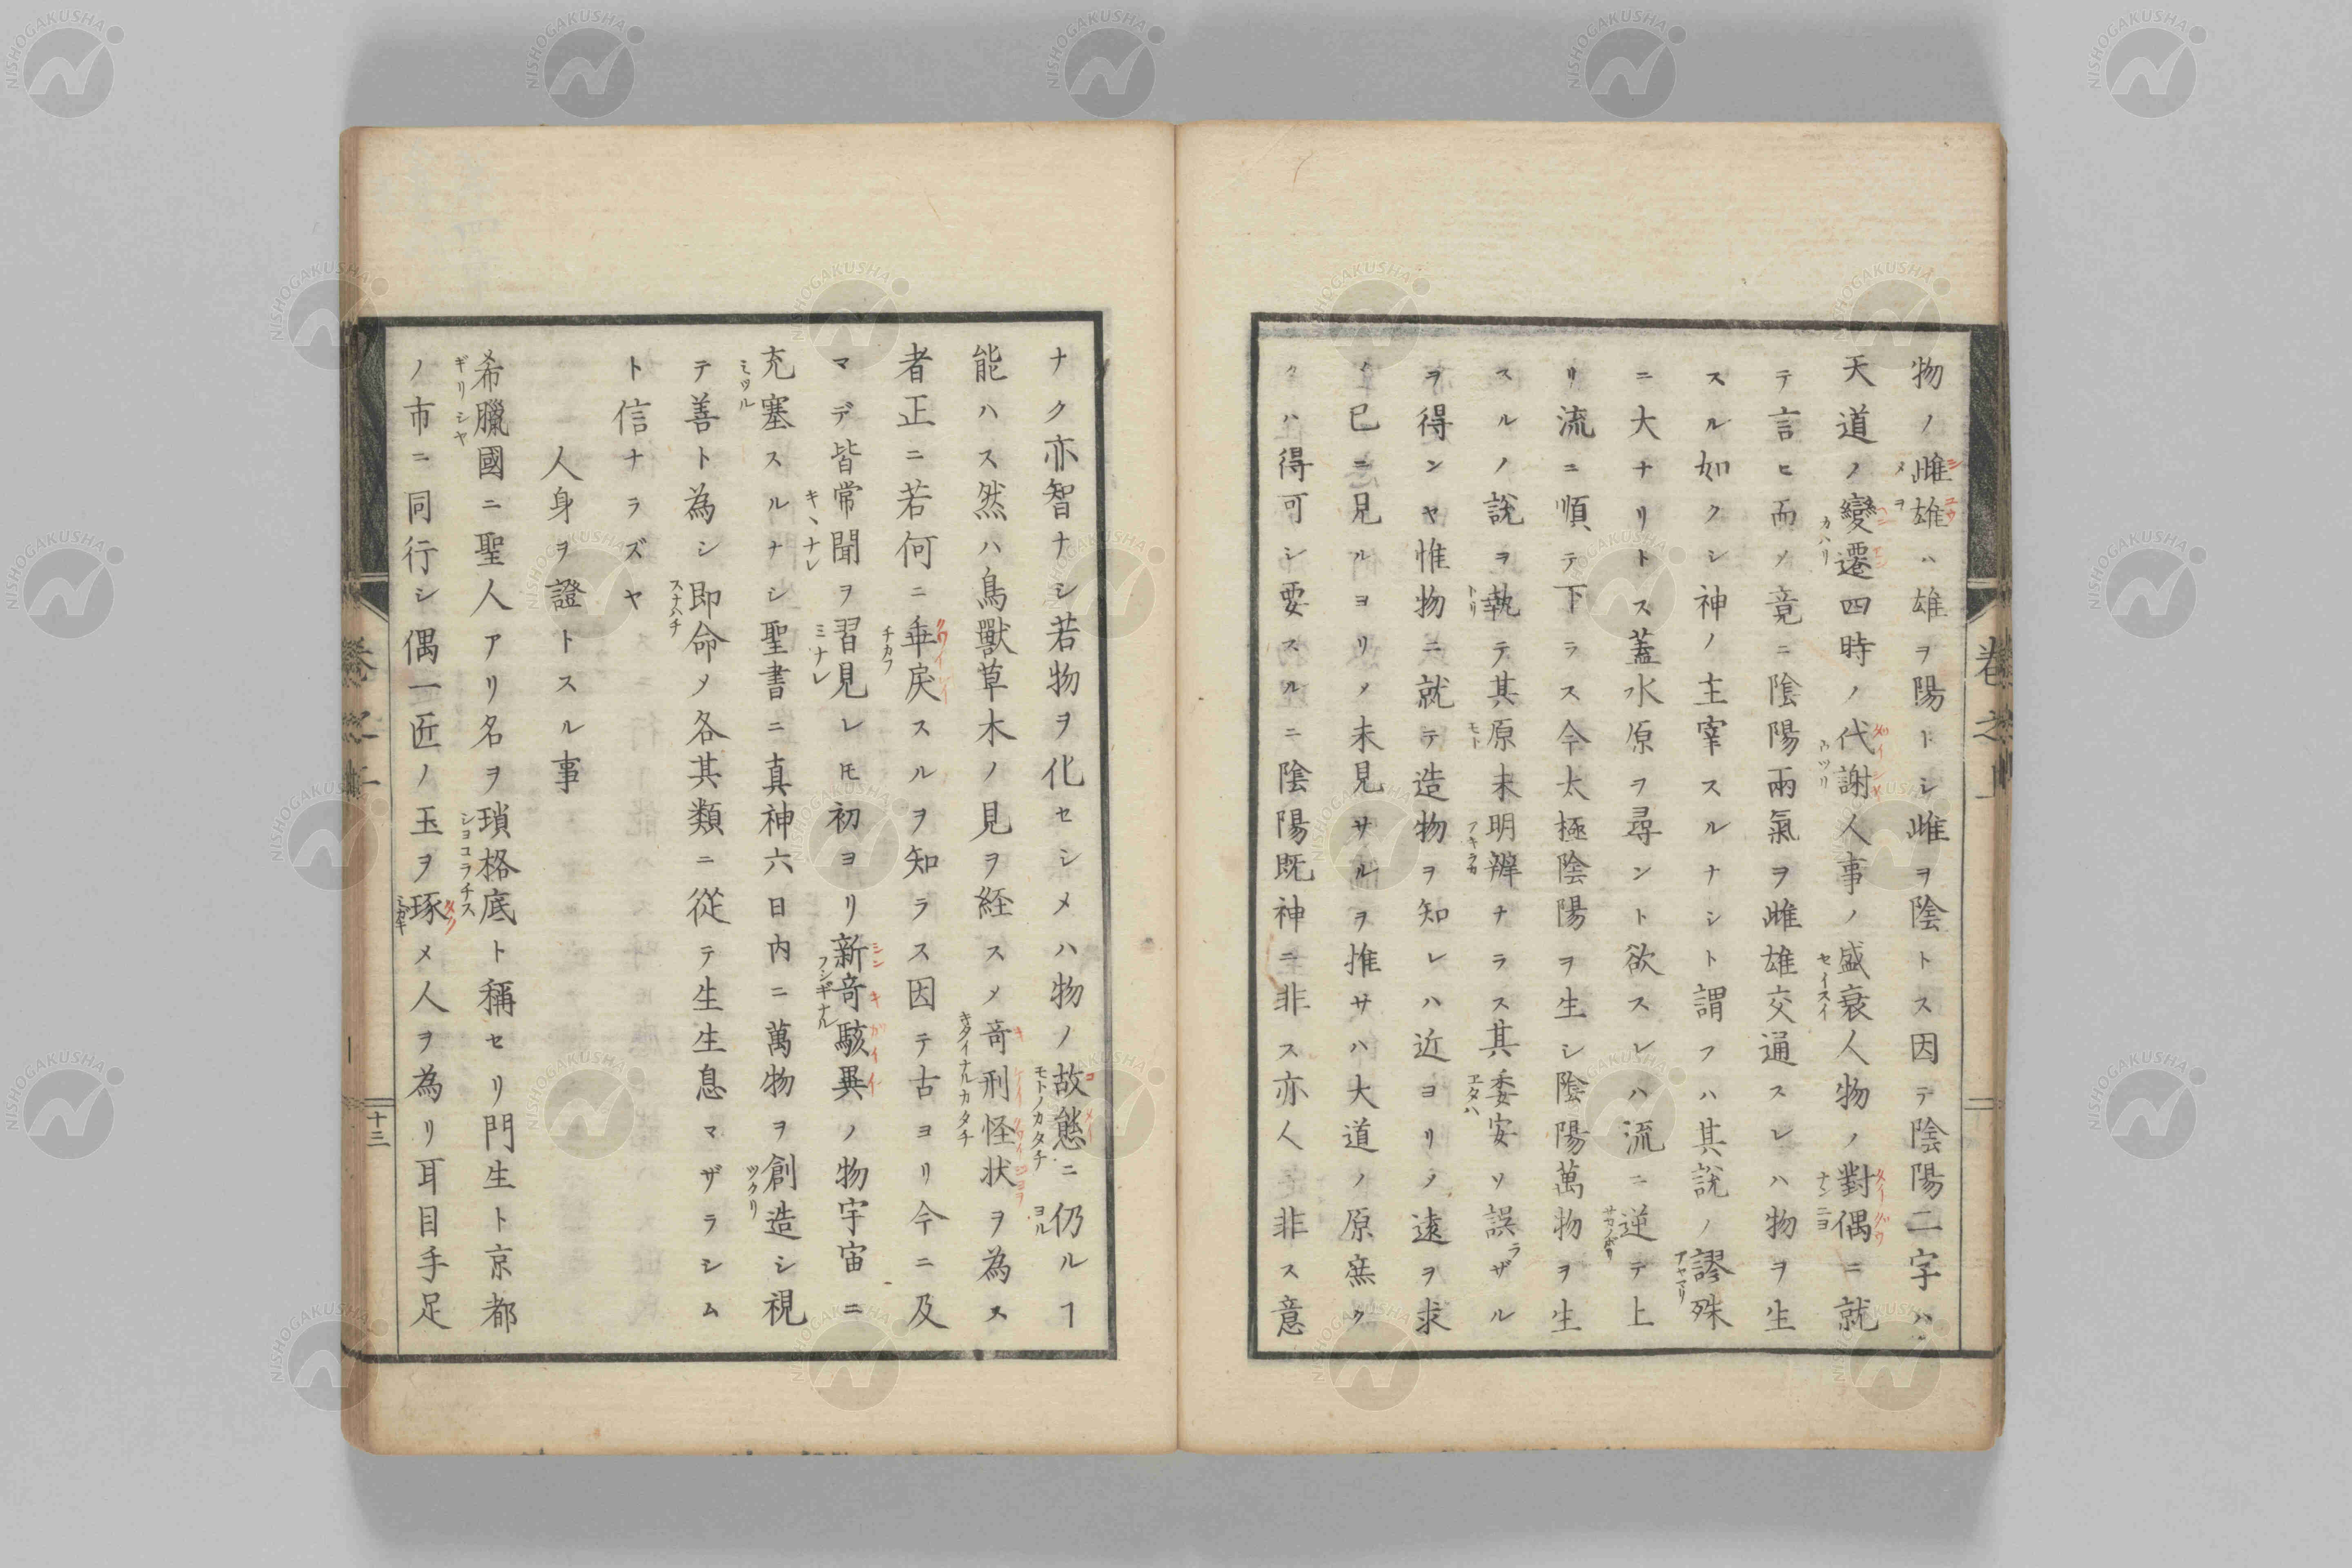 物ノ雌雄ハ雄ヲ陽トシ雌ヲ陰トス因テ陰陽二字ハ
天道ノ變遷四時ノ代謝人事ノ盛衰人物ノ對偶ニ就
テ言ヒ而メ竟ニ陰陽兩氣ヲ雌雄交通スレハ物ヲ生
スル如クシ神ノ主宰スルナシト謂フハ其説ノ謬殊
ニ大ナリトス蓋水原ヲ尋ント欲スレハ流ニ逆テ上
リ流ニ順テ下ラス今太極陰陽ヲ生シ陰陽萬物ヲ生
スルノ説ヲ執テ其原未明辨ナラス其委安ソ誤ラザル
ヲ得ンヤ惟物ニ就テ造物ヲ知レハ近ヨリメ遠ヲ求
メ已ニ見ルヨリメ未見サルヲ推サハ大道ノ原無ク
クハ得可シ要スルニ陰陽既神ニ非ス亦人非ス意
巻之上
ナク亦智ナシ若物ヲ化セシメハ物ノ故態ニ仍ルヿ
能ハス然ハ鳥獸草木ノ見ヲ経スメ竒刑怪状ヲ為ス
者正ニ若何ニ乖戻スルヲ知ラス因テ古ヨリ今ニ及
マデ皆常聞ヲ習見レ𪜈初ヨリ新竒駭異ノ物宇宙ニ
充塞スルナシ聖書ニ真神六日内ニ萬物ヲ創造シ視
テ善ト為シ即命メ各其類ニ從テ生生息マザラシム
ト信ナラズヤ
人身ヲ證トスル事
希臘國ニ聖人アリ名ヲ瑣格底ト稱セリ門生ト京都
ノ市ニ同行シ偶一匠ノ玉ヲ琢メ人ヲ為リ耳目手足
十三